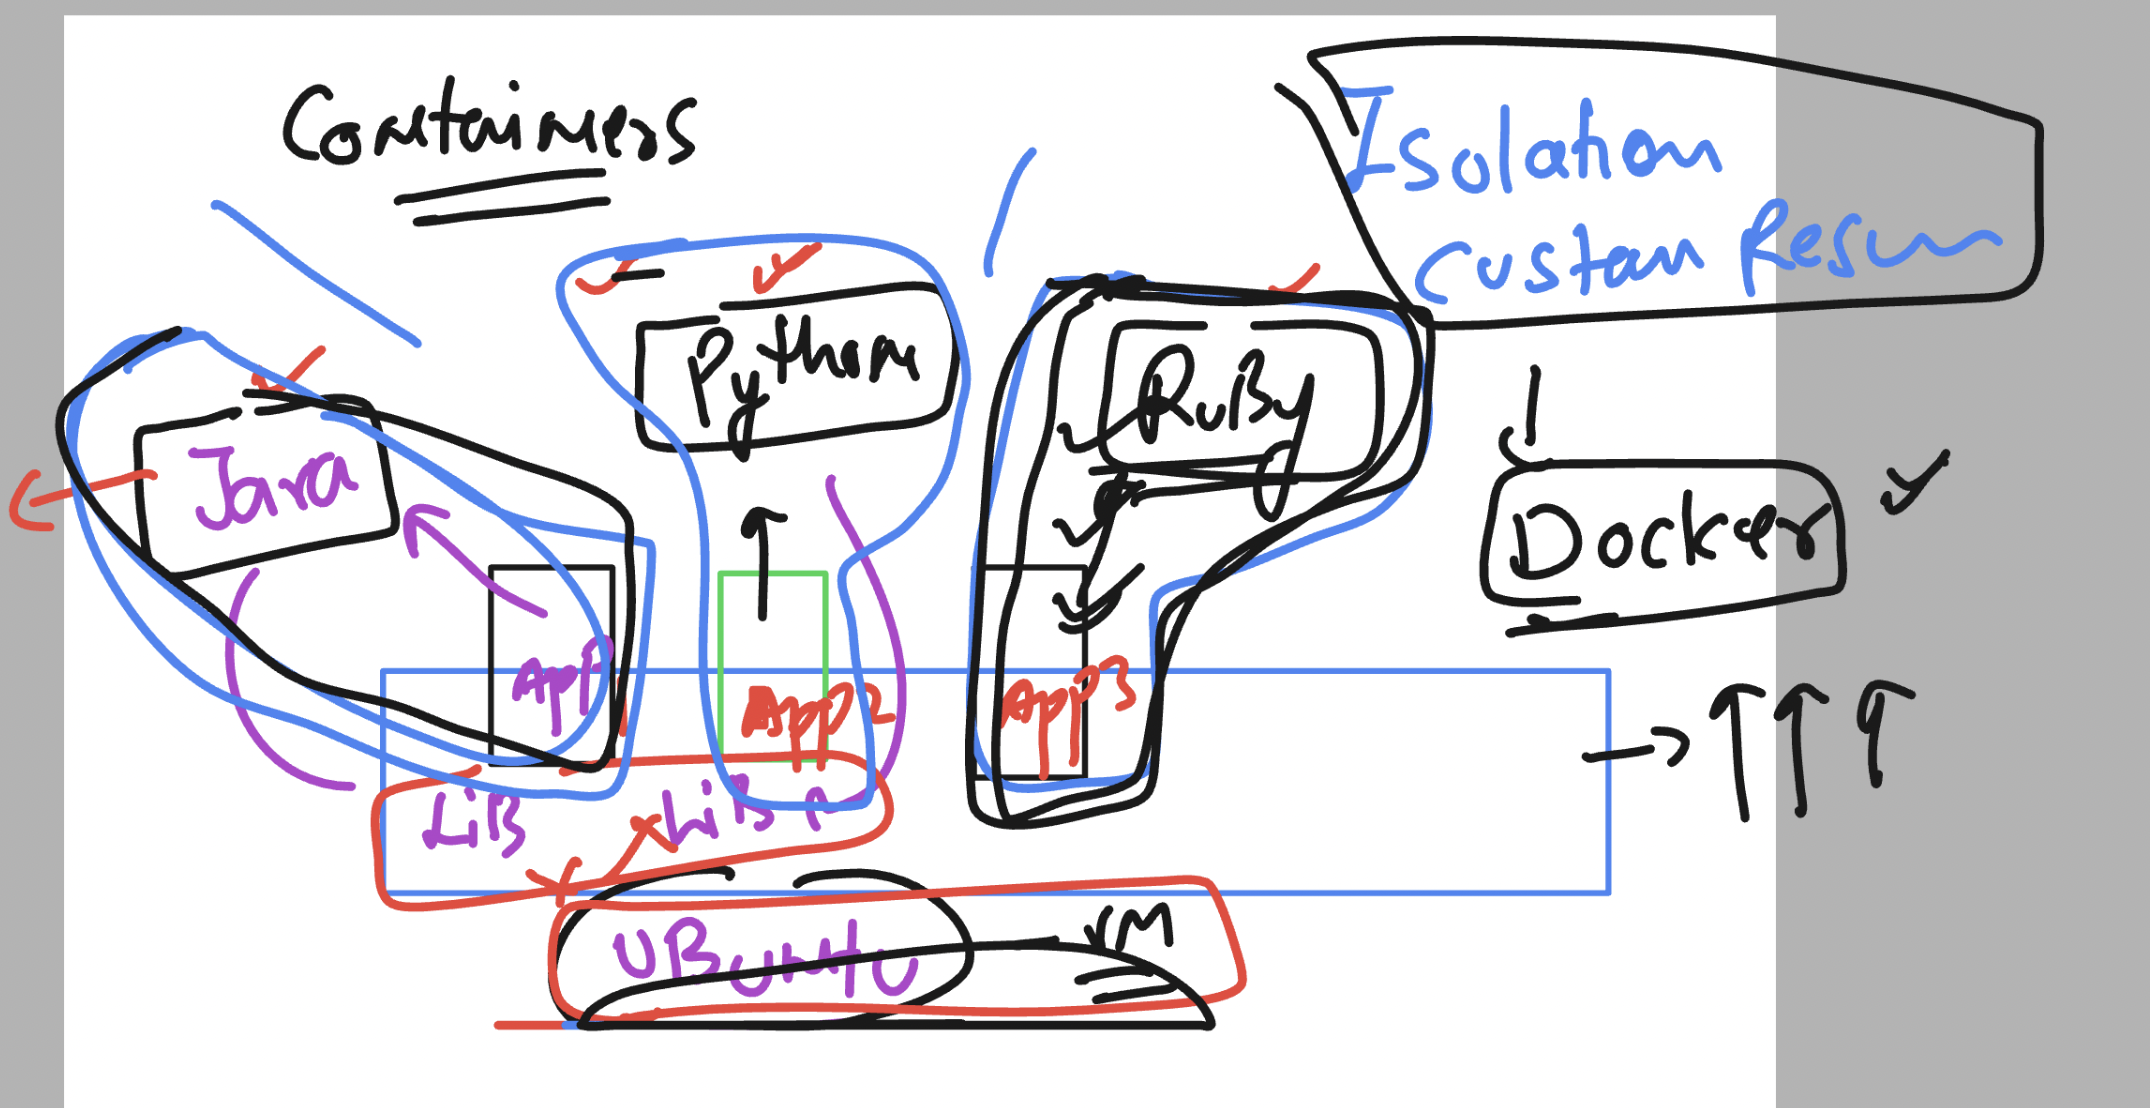 Containers
Isolation
Custom Resu
Python
RuBy
Java
Docker
App1
App2
App3
LiB
LiB
UBuntu
VM